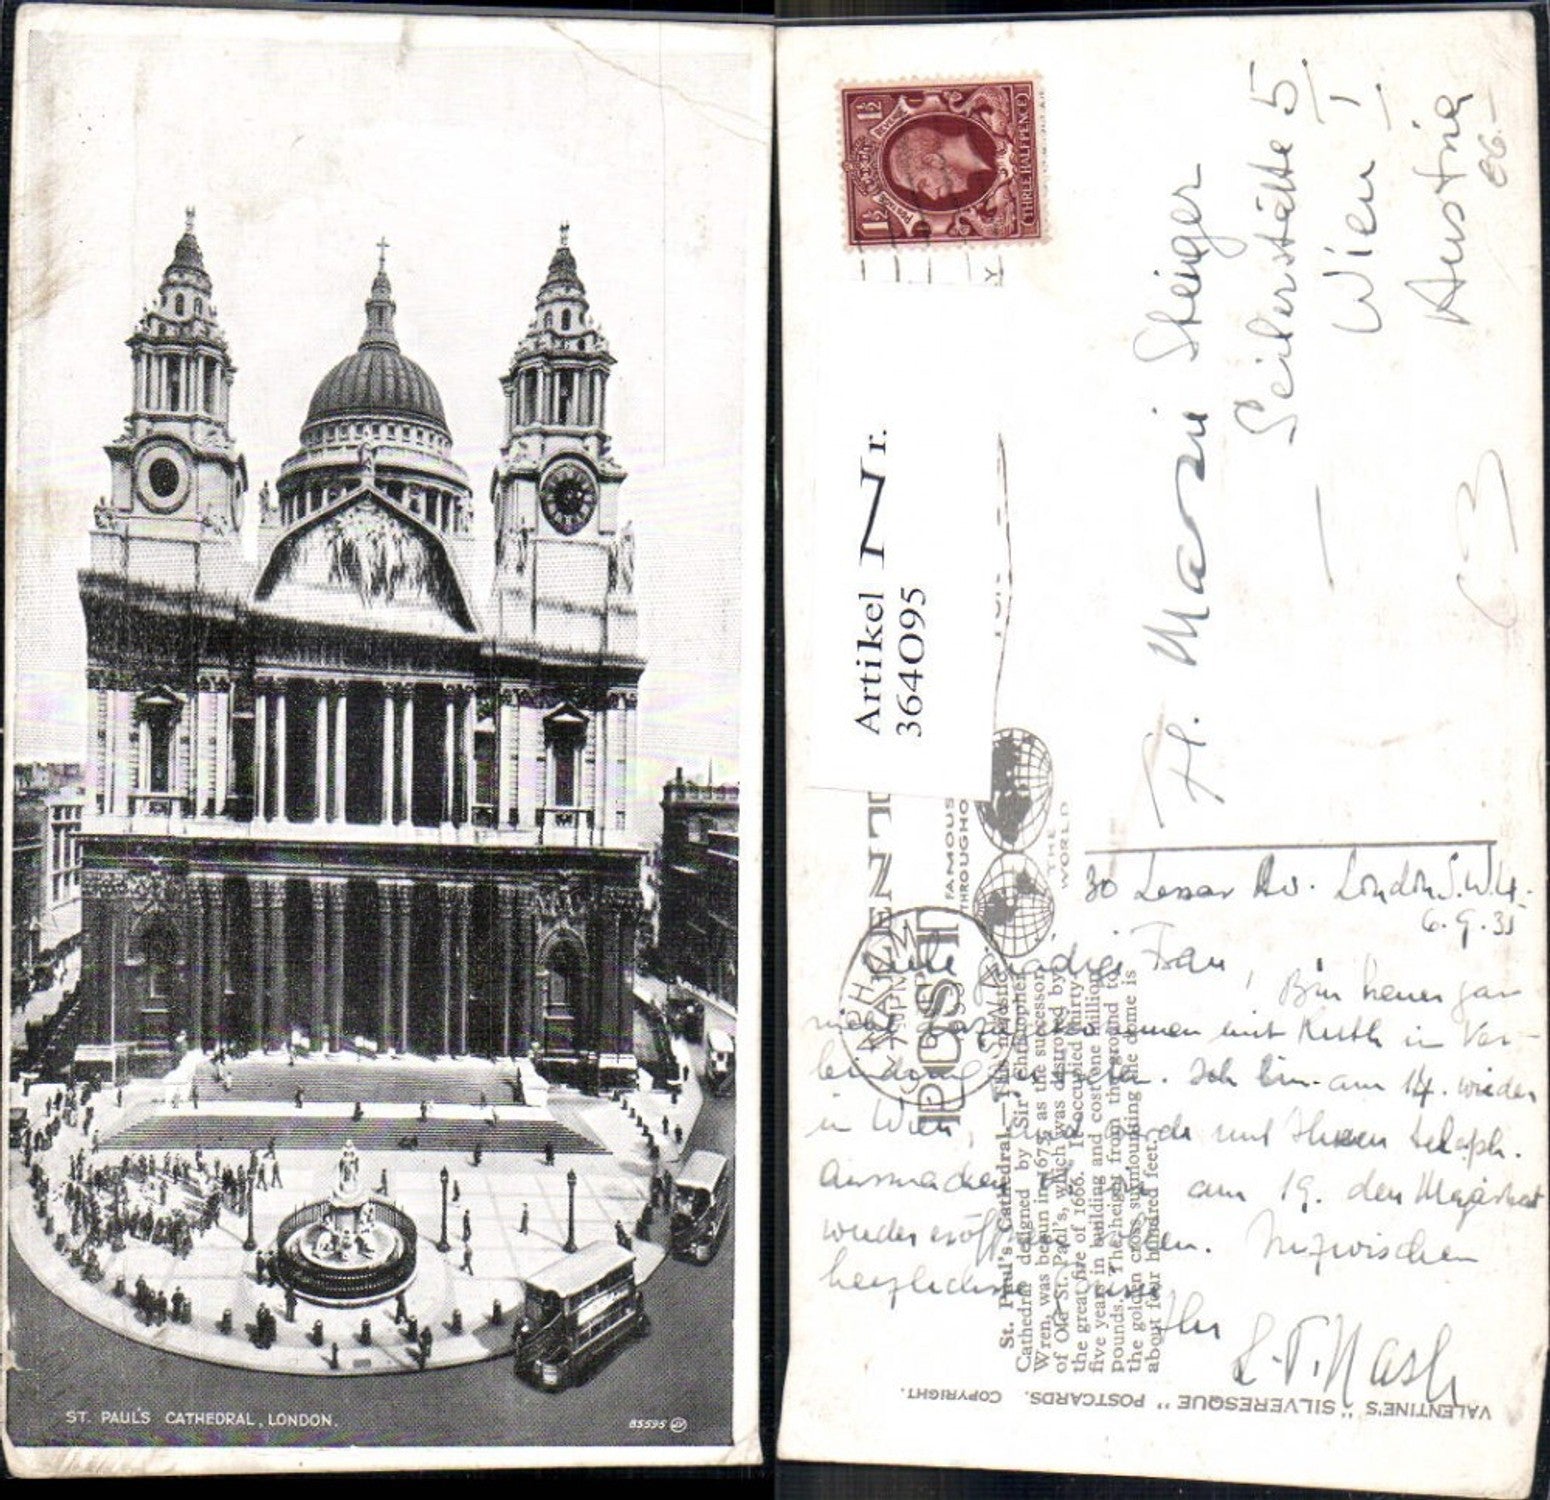 ST. PAUL'S CATHEDRAL, LONDON.
85595 JV
1½ 1½
POSTAGE REVENUE
THREE HALFPENCE
Artikel Nr.
364095
VALENTINE
POST
FAMOUS
THROUGHO
THE
WORLD
St. Paul's Cathedral.—The
Cathedral designed by Sir Christopher
Wren, was begun in 1675, as the successor
of Old St. Paul's, which was destroyed by
the great fire of 1666. It occupied thirty-
five years in building and cost one million
pounds. The height from the ground to
the golden cross surmounting the dome is
about four hundred feet.
VALENTINE'S "SILVERESQUE" POSTCARDS. COPYRIGHT.
Steiger
Seilerstätte 5
Wien I
Austria
86.-
30 Lessar Av. London S.W.4.
6.9.35
Frau, Bin heuer gar
nicht mit Ruth in Ver-
Ich bin am 14. wieder
in Wien, und Ihnen teleph.
ausmachen am 19. den
wieder Inzwischen
herzlichst
Ihr
Nash